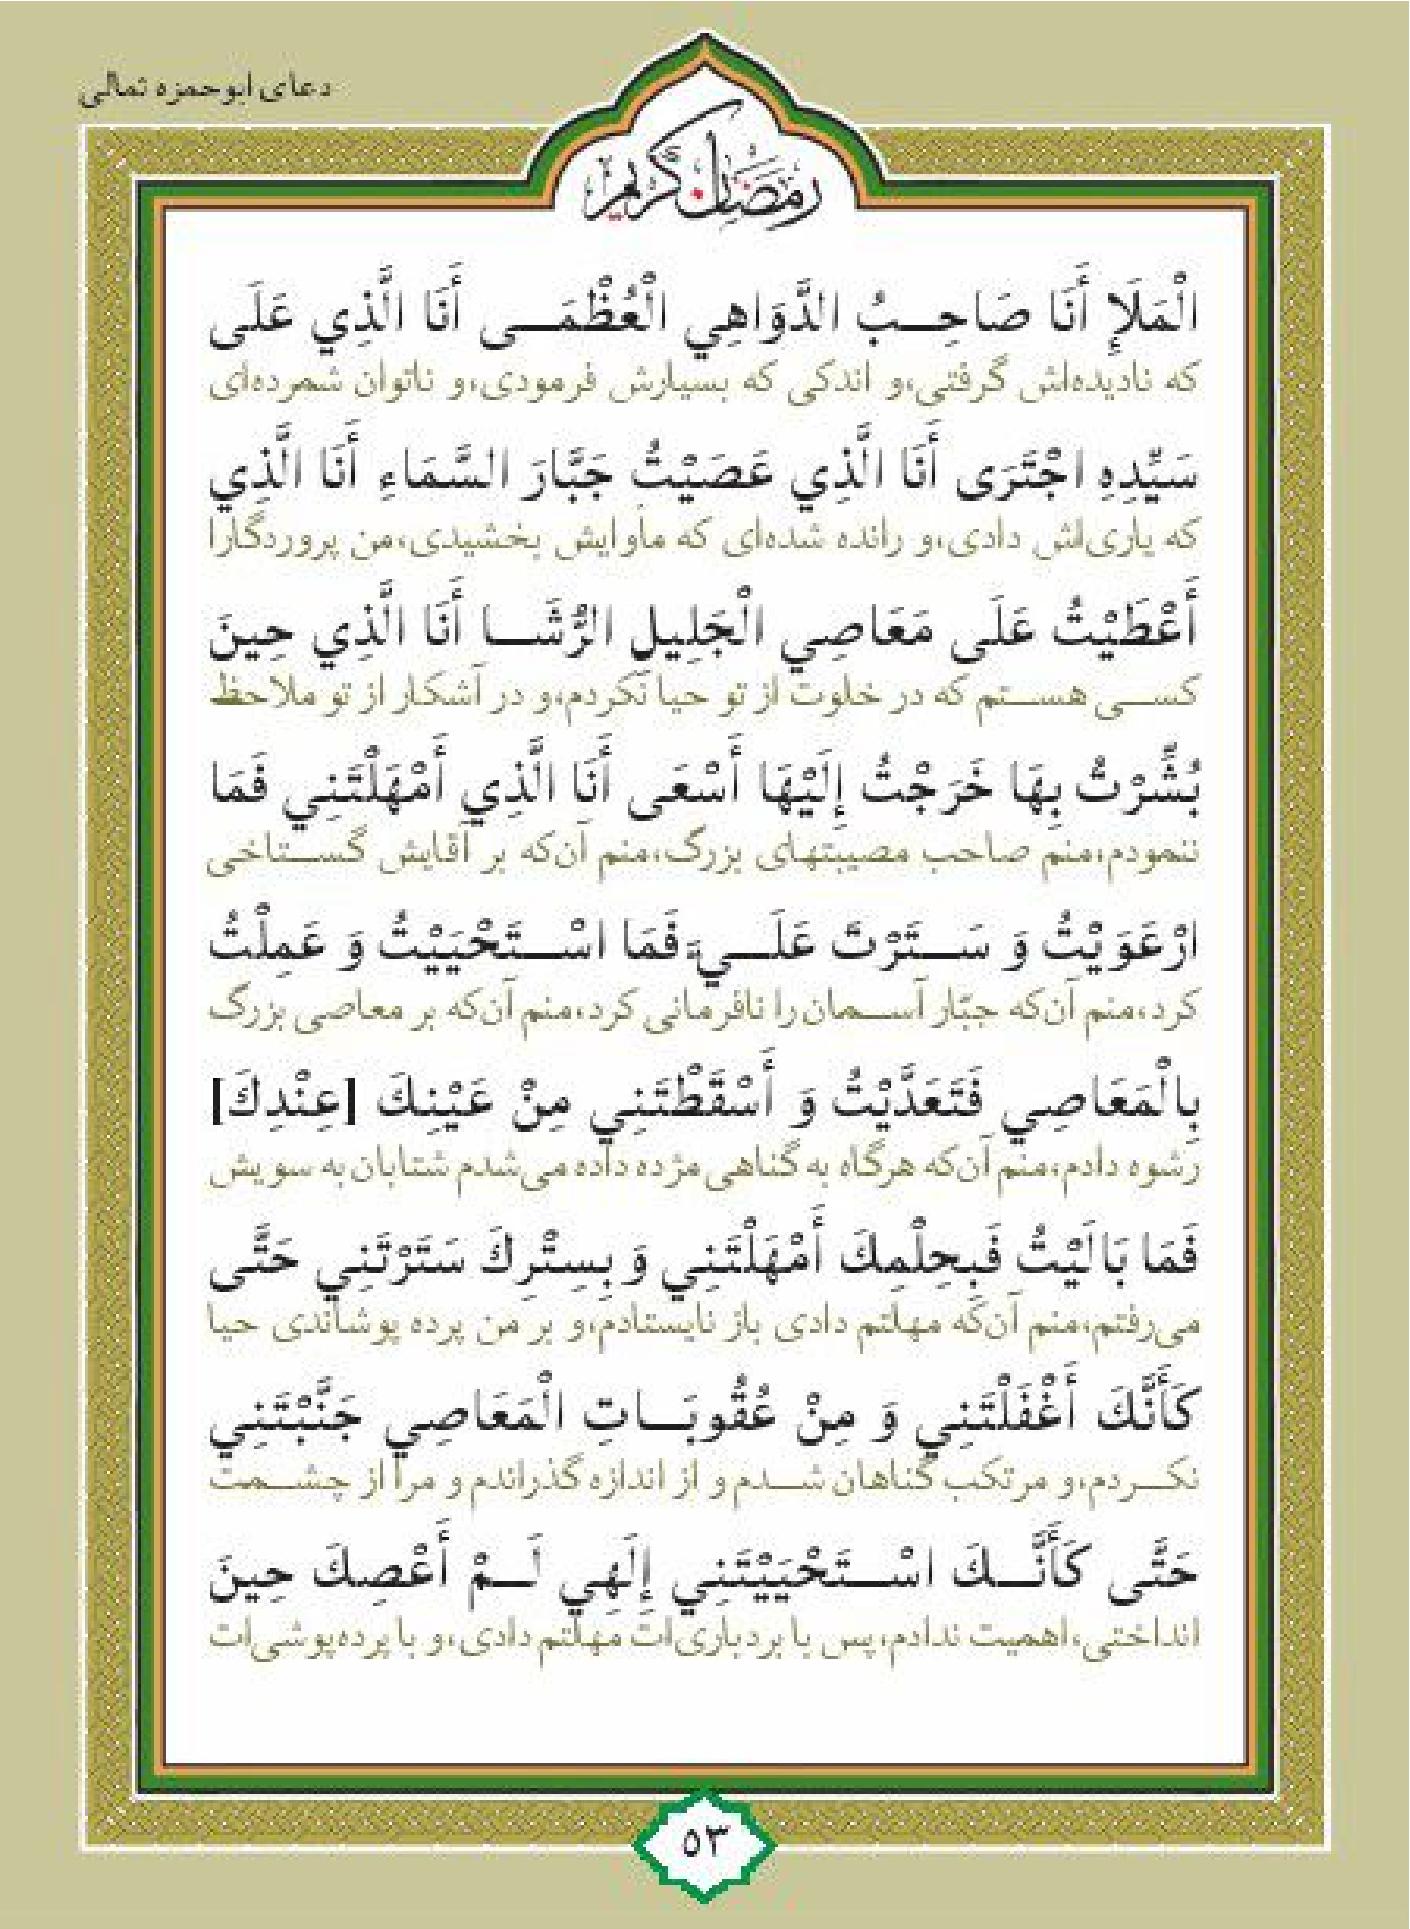 دعای ابوحمزه ثمالی
رمضان کریم
الْمَلَإِ أَنَا صَاحِبُ الدَّوَاهِي الْعُظْمَى أَنَا الَّذِي عَلَى
که نادیده‌اش گرفتی،و اندکی که بسیارش فرمودی،و ناتوان شمرده‌ای
سَيِّدِهِ اجْتَرَى أَنَا الَّذِي عَصَيْتُ جَبَّارَ السَّمَاءِ أَنَا الَّذِي
که یاری‌اش دادی،و رانده شده‌ای که مأوایش بخشیدی،من پروردگارا
أَعْطَيْتُ عَلَى مَعَاصِي الْجَلِيلِ الرُّشَا أَنَا الَّذِي حِينَ
کسی هستم که در خلوت از تو حیا نکردم،و در آشکار از تو ملاحظ
بُشِّرْتُ بِهَا خَرَجْتُ إِلَيْهَا أَسْعَى أَنَا الَّذِي أَمْهَلْتَنِي فَمَا
ننمودم،منم صاحب مصیبتهای بزرگ،منم آن‌که بر آقایش گستاخی
ارْعَوَيْتُ وَ سَتَرْتَ عَلَيَّ فَمَا اسْتَحْيَيْتُ وَ عَمِلْتُ
کرد،منم آن‌که جبّار آسمان را نافرمانی کرد،منم آن‌که بر معاصی بزرگ
بِالْمَعَاصِي فَتَعَدَّيْتُ وَ أَسْقَطْتَنِي مِنْ عَيْنِكَ [عِنْدِكَ]
رشوه دادم،منم آن‌که هرگاه به گناهی مژده داده می‌شدم شتابان به سویش
فَمَا بَالَيْتُ فَبِحِلْمِكَ أَمْهَلْتَنِي وَ بِسِتْرِكَ سَتَرْتَنِي حَتَّى
می‌رفتم،منم آن‌که مهلتم دادی باز نایستادم،و بر من پرده پوشاندی حیا
كَأَنَّكَ أَغْفَلْتَنِي وَ مِنْ عُقُوبَاتِ الْمَعَاصِي جَنَّبْتَنِي
نکردم،و مرتکب گناهان شدم و از اندازه گذراندم و مرا از چشمت
حَتَّى كَأَنَّكَ اسْتَحْيَيْتَنِي إِلَهِي لَمْ أَعْصِكَ حِينَ
انداختی،اهمیت ندادم،پس با بردباری‌ات مهلتم دادی،و با پرده‌پوشی‌ات
۵۳